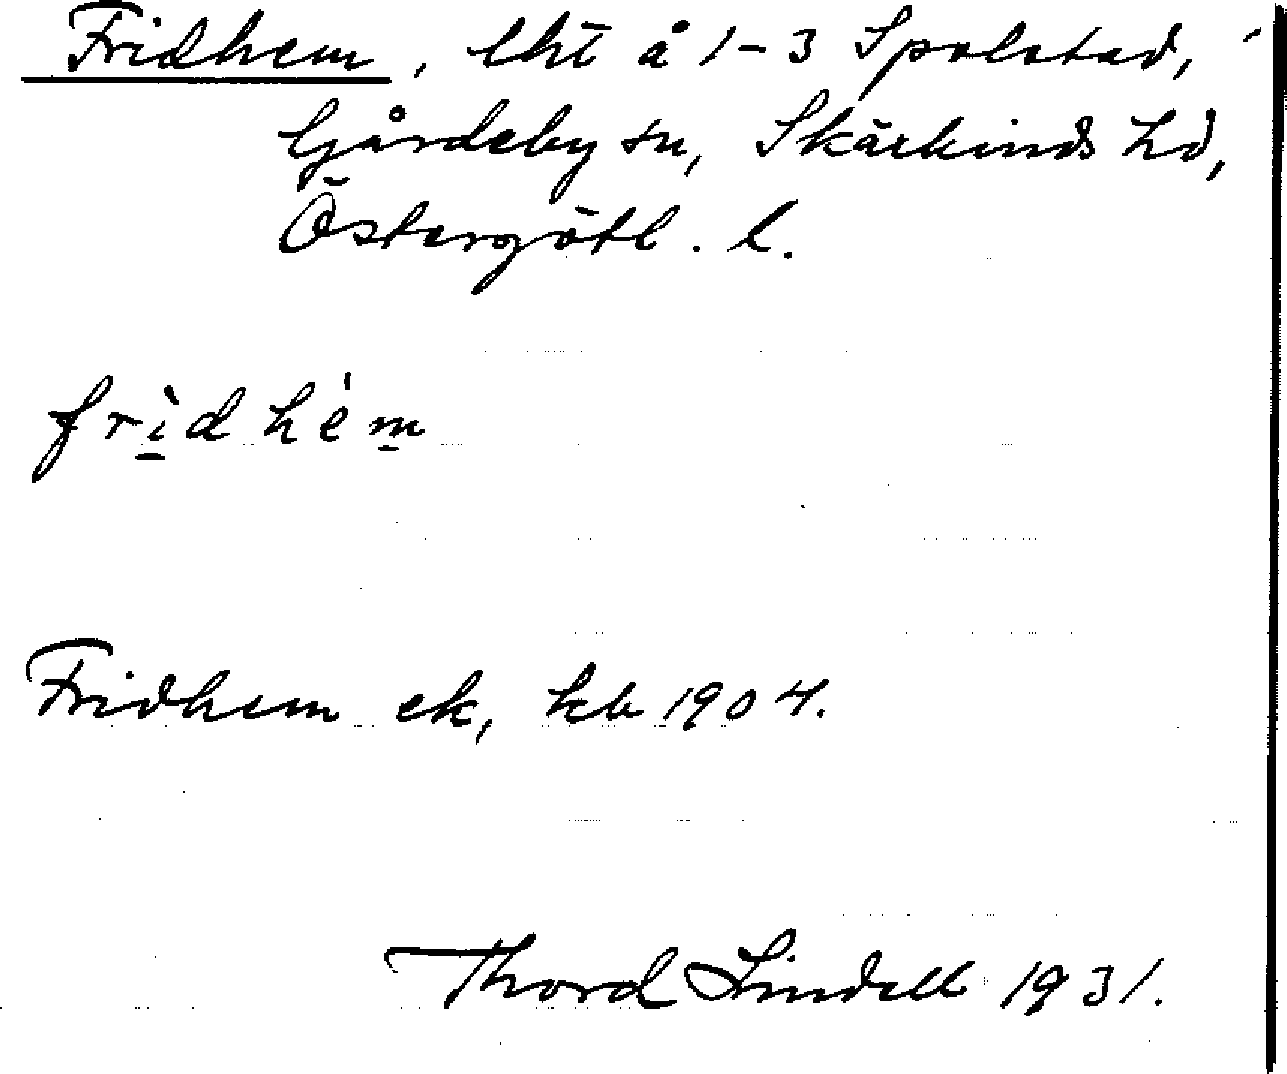 Fridhem, lht å 1-3 Spolstad,
Gårdeby sn, Skärkinds hd,
Östergötl. l.
frìdhém
Fridhem ek, kb 1904.
Thord Lindell 1931.